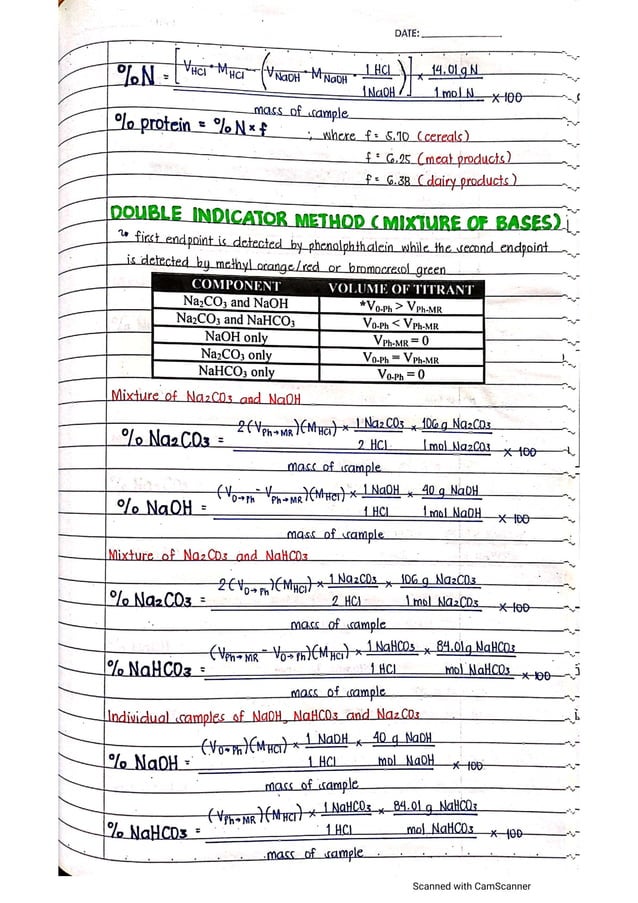 DATE:
%N = [V_HCl · M_HCl – (V_NaOH · M_NaOH · 1 HCl / 1 NaOH)] × 14.01 g N / 1 mol N × 100
mass of sample
% protein = %N × f ; where f = 5.70 (cereals)
f = 6.25 (meat products)
f = 6.38 (dairy products)
DOUBLE INDICATOR METHOD (MIXTURE OF BASES)
first endpoint is detected by phenolphthalein while the second endpoint
is detected by methyl orange/red or bromocresol green
COMPONENT VOLUME OF TITRANT
Na2CO3 and NaOH *V0-Ph > VPh-MR
Na2CO3 and NaHCO3 V0-Ph < VPh-MR
NaOH only VPh-MR = 0
Na2CO3 only V0-Ph = VPh-MR
NaHCO3 only V0-Ph = 0
Mixture of Na2CO3 and NaOH
% Na2CO3 = 2(VPh→MR)(MHCl) × 1 Na2CO3 / 2 HCl × 106 g Na2CO3 / 1 mol Na2CO3 × 100
mass of sample
% NaOH = (V0→Ph - VPh→MR)(MHCl) × 1 NaOH / 1 HCl × 40 g NaOH / 1 mol NaOH × 100
mass of sample
Mixture of Na2CO3 and NaHCO3
% Na2CO3 = 2(V0→Ph)(MHCl) × 1 Na2CO3 / 2 HCl × 106 g Na2CO3 / 1 mol Na2CO3 × 100
mass of sample
% NaHCO3 = (VPh→MR - V0→Ph)(MHCl) × 1 NaHCO3 / 1 HCl × 84.01g NaHCO3 / mol NaHCO3 × 100
mass of sample
Individual samples of NaOH, NaHCO3 and Na2CO3
% NaOH = (V0→Ph)(MHCl) × 1 NaOH / 1 HCl × 40 g NaOH / mol NaOH × 100
mass of sample
% NaHCO3 = (VPh→MR)(MHCl) × 1 NaHCO3 / 1 HCl × 84.01 g NaHCO3 / mol NaHCO3 × 100
mass of sample
Scanned with CamScanner